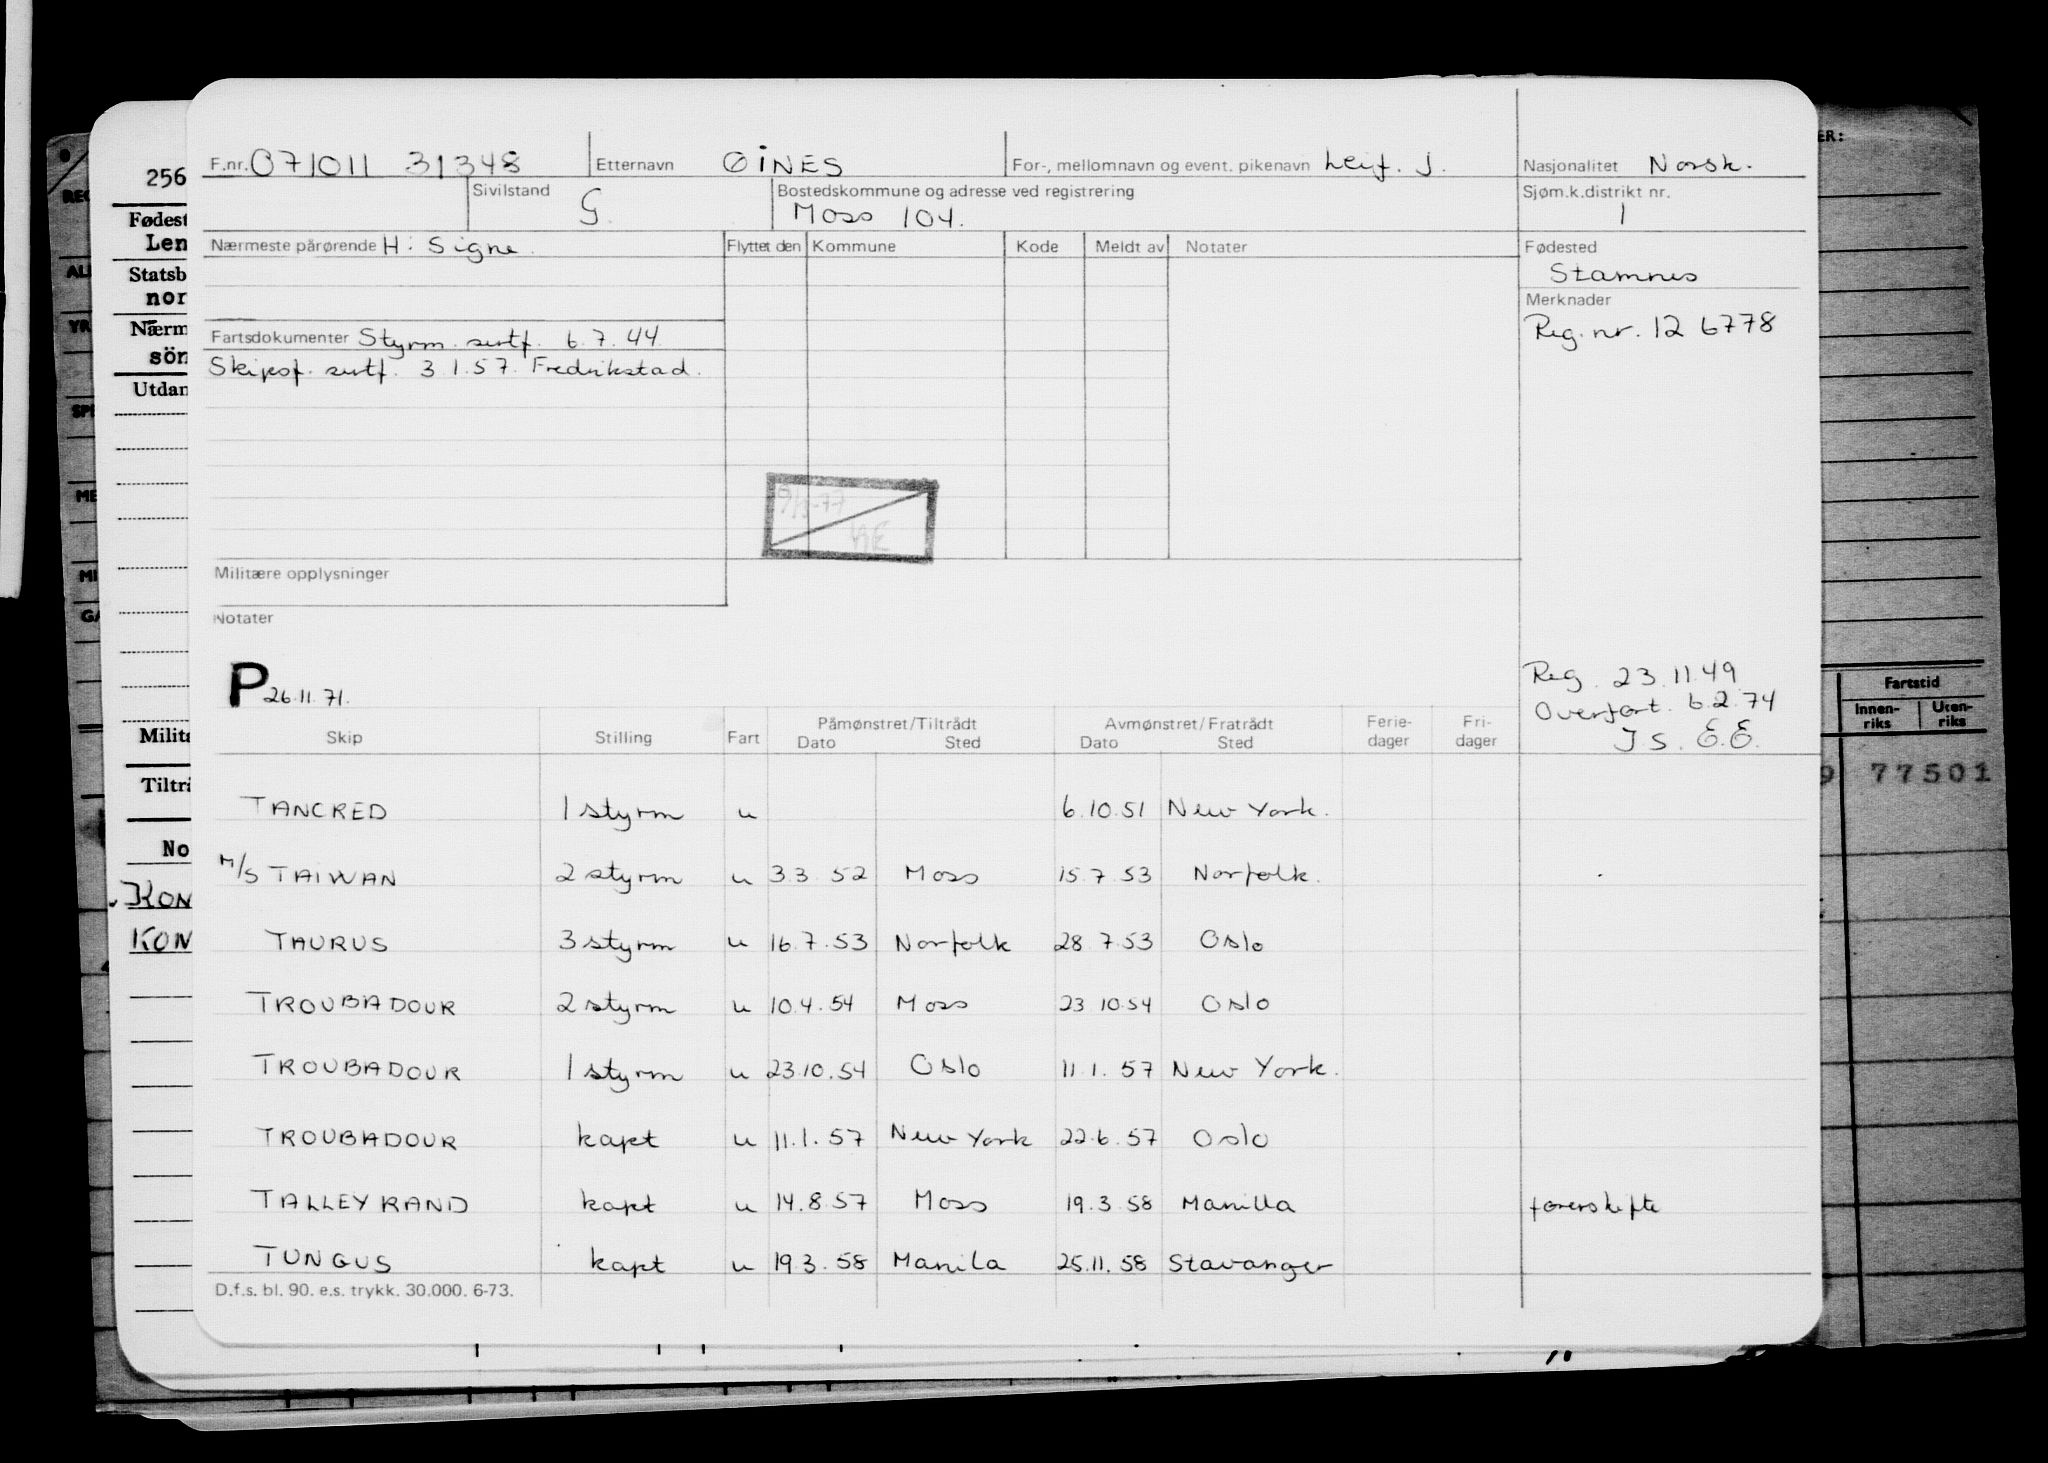 F.nr. 071011 31348 Etternavn OINES For-, mellomnavn og event. pikenavn Leif. J. Nasjonalitet Norsk.
Sivilstand G. Bostedskommune og adresse ved registrering Moss 104. Sjøm.k.distrikt nr. 1
Nærmeste pårørende H: Signe. Flyttet den Kommune Kode Meldt av Notater Fødested
Stamnes
Merknader
Reg.nr. 126778
Fartsdokumenter Styrm. sertf. 6.7.44.
Skipsf. sertf. 3.1.57. Fredrikstad.
Militære opplysninger
Notater
P 26.11.71.
Reg. 23.11.49
Overført. 6.2.74
J S. E.E.
Skip Stilling Fart Påmønstret/Tiltrådt Dato Sted Avmønstret/Fratrådt Dato Sted Ferie-dager Fri-dager
TANCRED 1 styrm u 6.10.51 New York.
M/S TAIWAN 2 styrm u 3.3.52 Moss 15.7.53 Norfolk.
TAURUS 3 styrm u 16.7.53 Norfolk 28.7.53 Oslo
TROUBADOUR 2 styrm u 10.4.54 Moss 23.10.54 Oslo
TROUBADOUR 1 styrm u 23.10.54 Oslo 11.1.57 New York.
TROUBADOUR kapt u 11.1.57 New York 22.6.57 Oslo
TALLEYRAND kapt u 14.8.57 Moss 19.3.58 Manilla førerskifte
TUNGUS kapt u 19.3.58 Manila 25.11.58 Stavanger
D.f.s. bl. 90. e.s. trykk. 30.000. 6-73.
256
Fødest
Len
Statsb
nor
Nærm
søn
Utdan
Milita
Tiltr
No
KON
KON
ER:
Fartstid
Innen-riks Uten-riks
9 77501